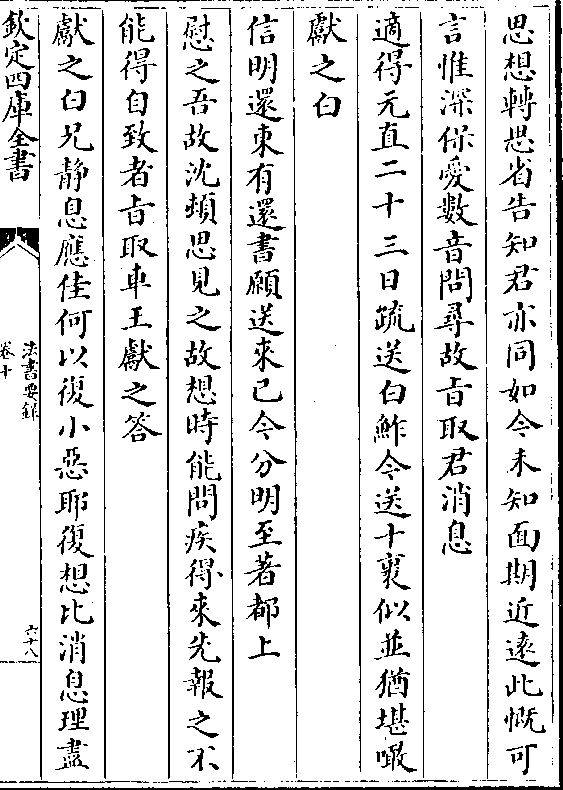 思想轉思省告知君亦同如今未知面期近遠此慨可
言惟深保愛數音問尋故旨取君消息
適得元直二十三日疏送白鮓今送十裹似並猶堪噉
獻之白
信明還東有還書願送來已今分明至著都上
慰之吾故沈頓思見之故想時能問疾得來先報之不
能得自致者旨取車王獻之答
獻之白兄靜息應佳何以復小惡耶復想比消息理盡
欽定四庫全書
法書要錄
卷十
六十八